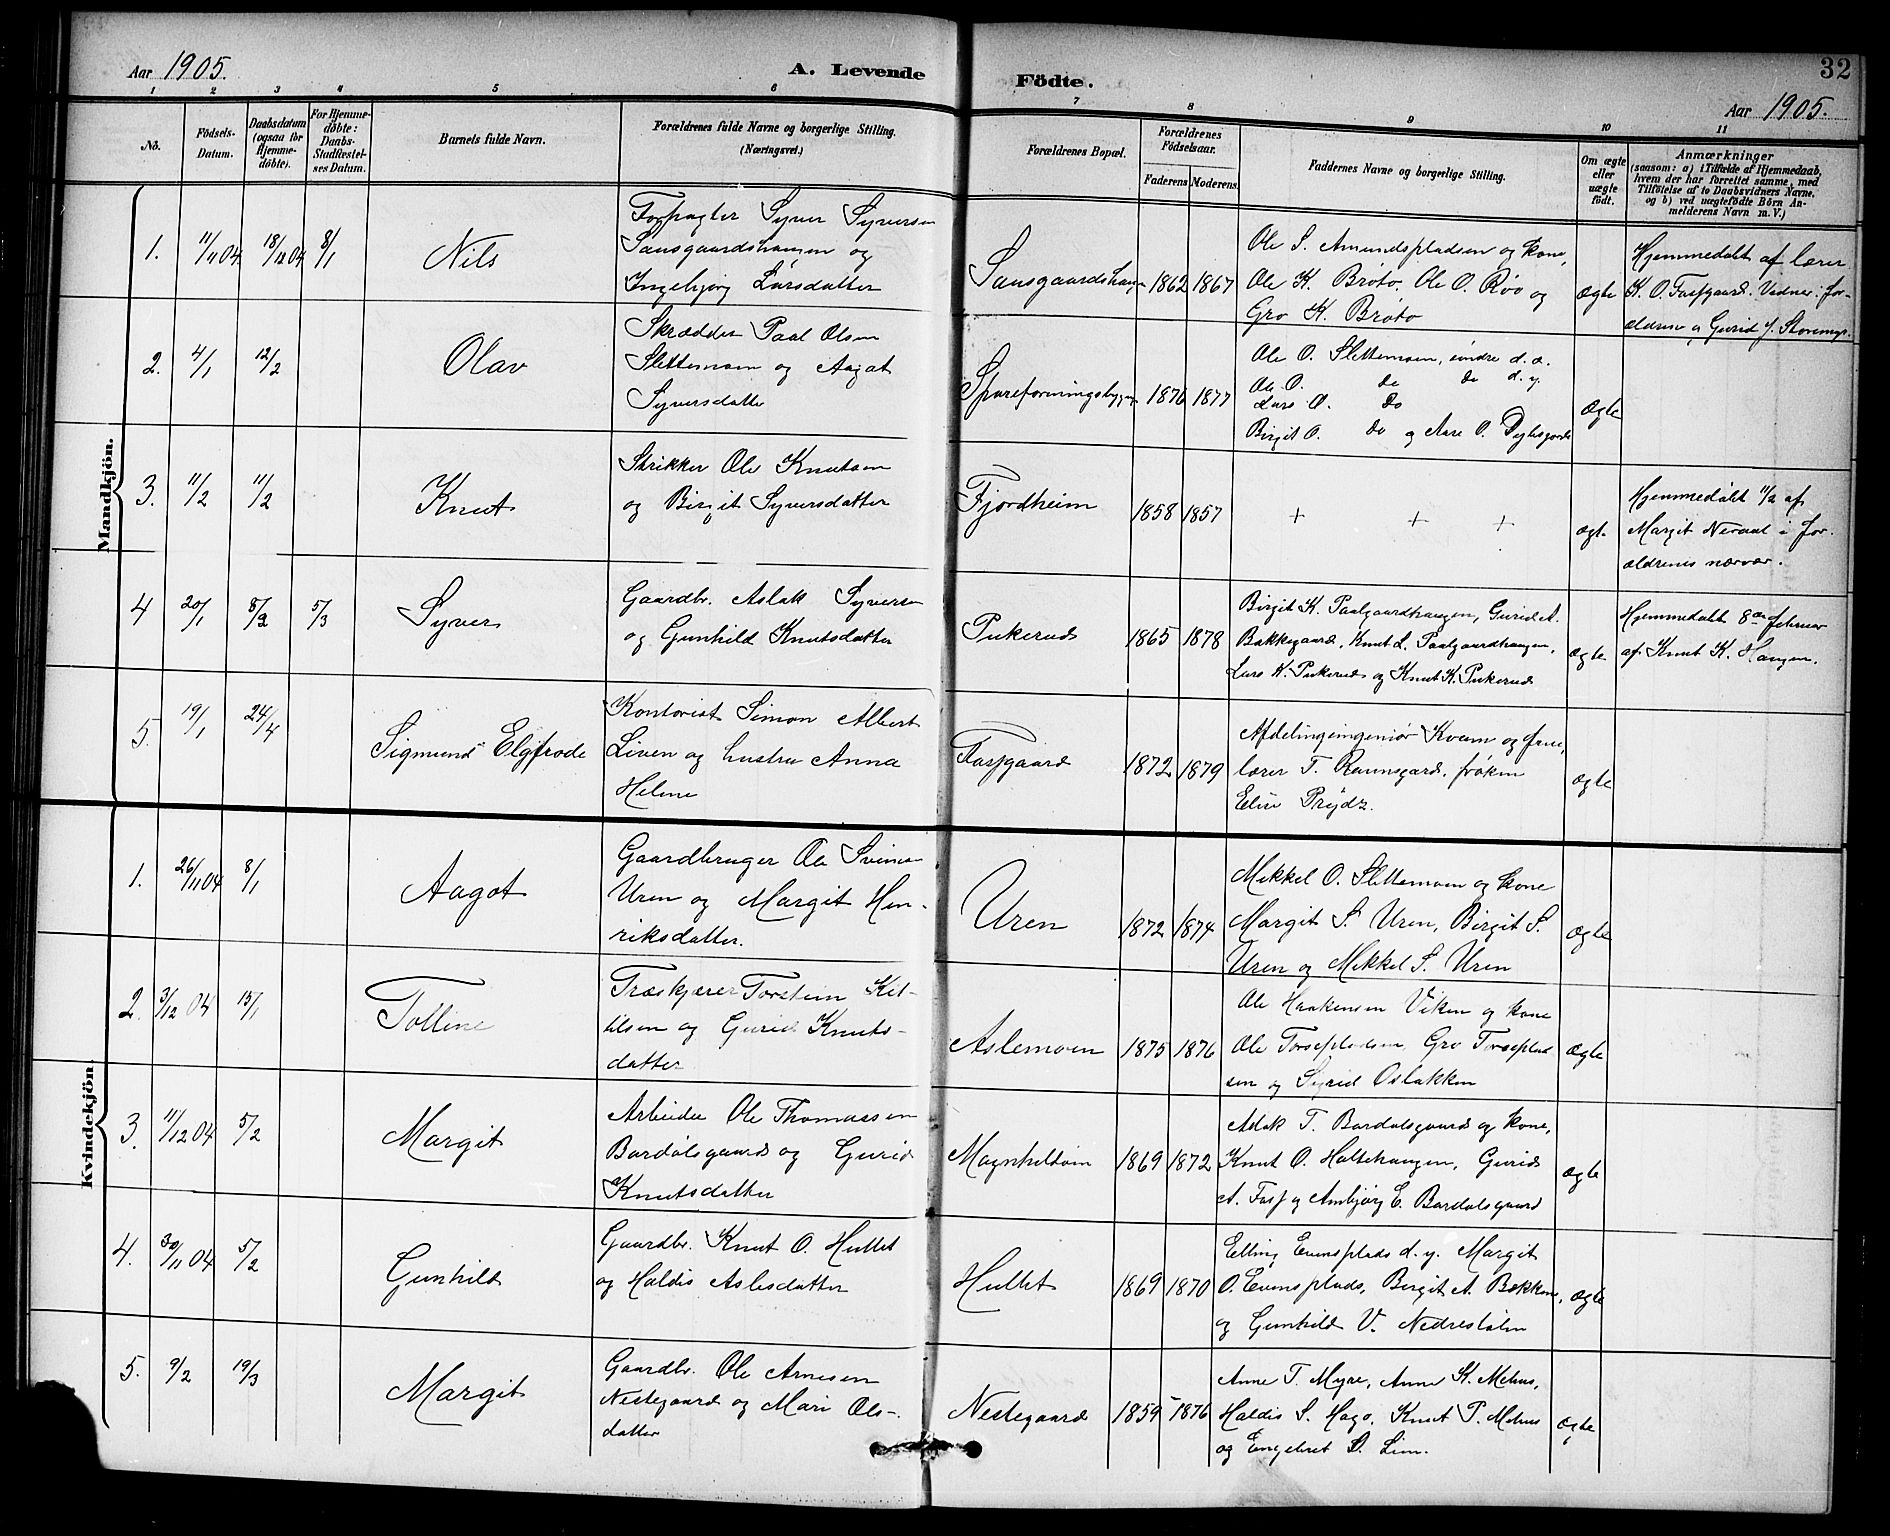 Aar 1905.
A. Levende
Födte.
32
Aar 1905.
1 2 3 4 5 6 7 8 9 10 11
No.
Födsels-
Datum.
Daabsdatum
(ogsaa for
Hjemme-
döbte).
For Hjemme-
döbte:
Daabs-
Stadfæstel-
ses Datum.
Barnets fulde Navn.
Forældrenes fulde Navne og borgerlige Stilling.
(Næringsvei.)
Forældrenes Bopæl.
Forældrenes
Födselsaar.
Faderens Moderens
Faddernes Navne og borgerlige Stilling.
Om ægte
eller
uægte
födt.
Anmærkninger
(saasom: a) i Tilfælde af Hjemmedaab,
hvem der har forrettet samme, med
Tilföielse af to Daabsvidners Navne,
og b) ved uægtefödte Börn An-
melderens Navn m. V.)
Mandkjön.
1. 11/11 04 18/12 04 8/1
Nils
Syver Syversen
Sansgaardshaugen og
Ingebjørg Larsdatter
Sansgaardshaugen
1862 1867
Ole S. Amundspladsen og kone,
Ole K. Bröto, Ole O. Röo og
Gro K. Bröto
ægte
Hjemmedøbt af lærer
K. O. Fasfgaard. Vidner: for-
ældrene og Gurid
2. 4/1 12/2
Olav
Skrædder Paal Olsen
Slettemoen og Aagot
Syversdatter
1876 1877
Ole O. Slettemoen, d. æ.
Ole O. do do d. y.
Lars O. Do
Birgit O. do og O.
ægte
3. 11/2 11/2
Knut
Ole Knutsen
og Birgit Syversdatter
Fjordheim
1858 1857
+ + +
ægt.
Hjemmedøbt 11/2 af
Margit Neraal i for-
ældrenes nærvær.
4 20/1 8/2 5/3
Syver
Gaardbr. Aslak Syversen
og Gunhild Knutsdatter
Pukerud
1865 1878
Birgit K. Paalgaardhaugen, Gurid A.
Bakkegaard, Knut L. Paalgaardhaugen,
Lars K. Pukerud og Knut K. Pukerud
ægte
Hjemmedøbt 8de februar
af Knut K. Haugen.
5. 19/1 24/4
Sigmund Elgfrode
Kontorist Simon Albert
Liven og hustru Anna
Helene
Fasfgaard
1872 1879
Afdelingsingeniør Kvam og frue,
lærer T. Raunsgard, frøken
Elise Prydz.
ægte
Kvindekjön.
1. 26/11 04 8/1
Aagot
Gaardbruger Ole
Uren og Margit Hen-
riksdatter.
Uren
1872 1874
Mikkel O. Slettemoen og kone
Margit S. Uren, Birgit S.
Uren og Mikkel S. Uren
ægte
2. 3/12 04 15/1
Tolline
Træskjærer Torstein Ket-
ilsen og Gurid Knuts-
datter
Aslemoen
1875 1876
Ole Haakensen Viken og kone
Ole Torsepladsen, Gro Torseplad-
sen og Sigrid Oslakken
ægte
3. 11/12 04 5/2
Margit
Arbeider Ole Thomassen
Bardalsgaard og Gurid
Knutsdatter
1869 1872
Aslak T. Bardalsgaard og kone,
Knut O. Holtehaugen, Gurid
A. Fasf og Ambjørg E. Bardalsgaard
ægte
4. 30/11 04 5/2
Gunhild
Gaardbr. Knut O. Hullet
og Haldis Aslesdatter
Hullet
1869 1870
Elling Evensplads d. y. Margit
O. Evensplads, Birgit A. Bakken,
og Gunhild V. Nedrestølen
ægte
5. 9/2 19/3
Margit
Gaardbr. Ole Arnesen
Nestegaard og Mari Ols-
datter
Nestegaard
1859 1876
Anne T. Myre, Anne K. Mehus,
Haldis S. Hago, Knut P. Mehus
og Engebret S. Lien.
ægte